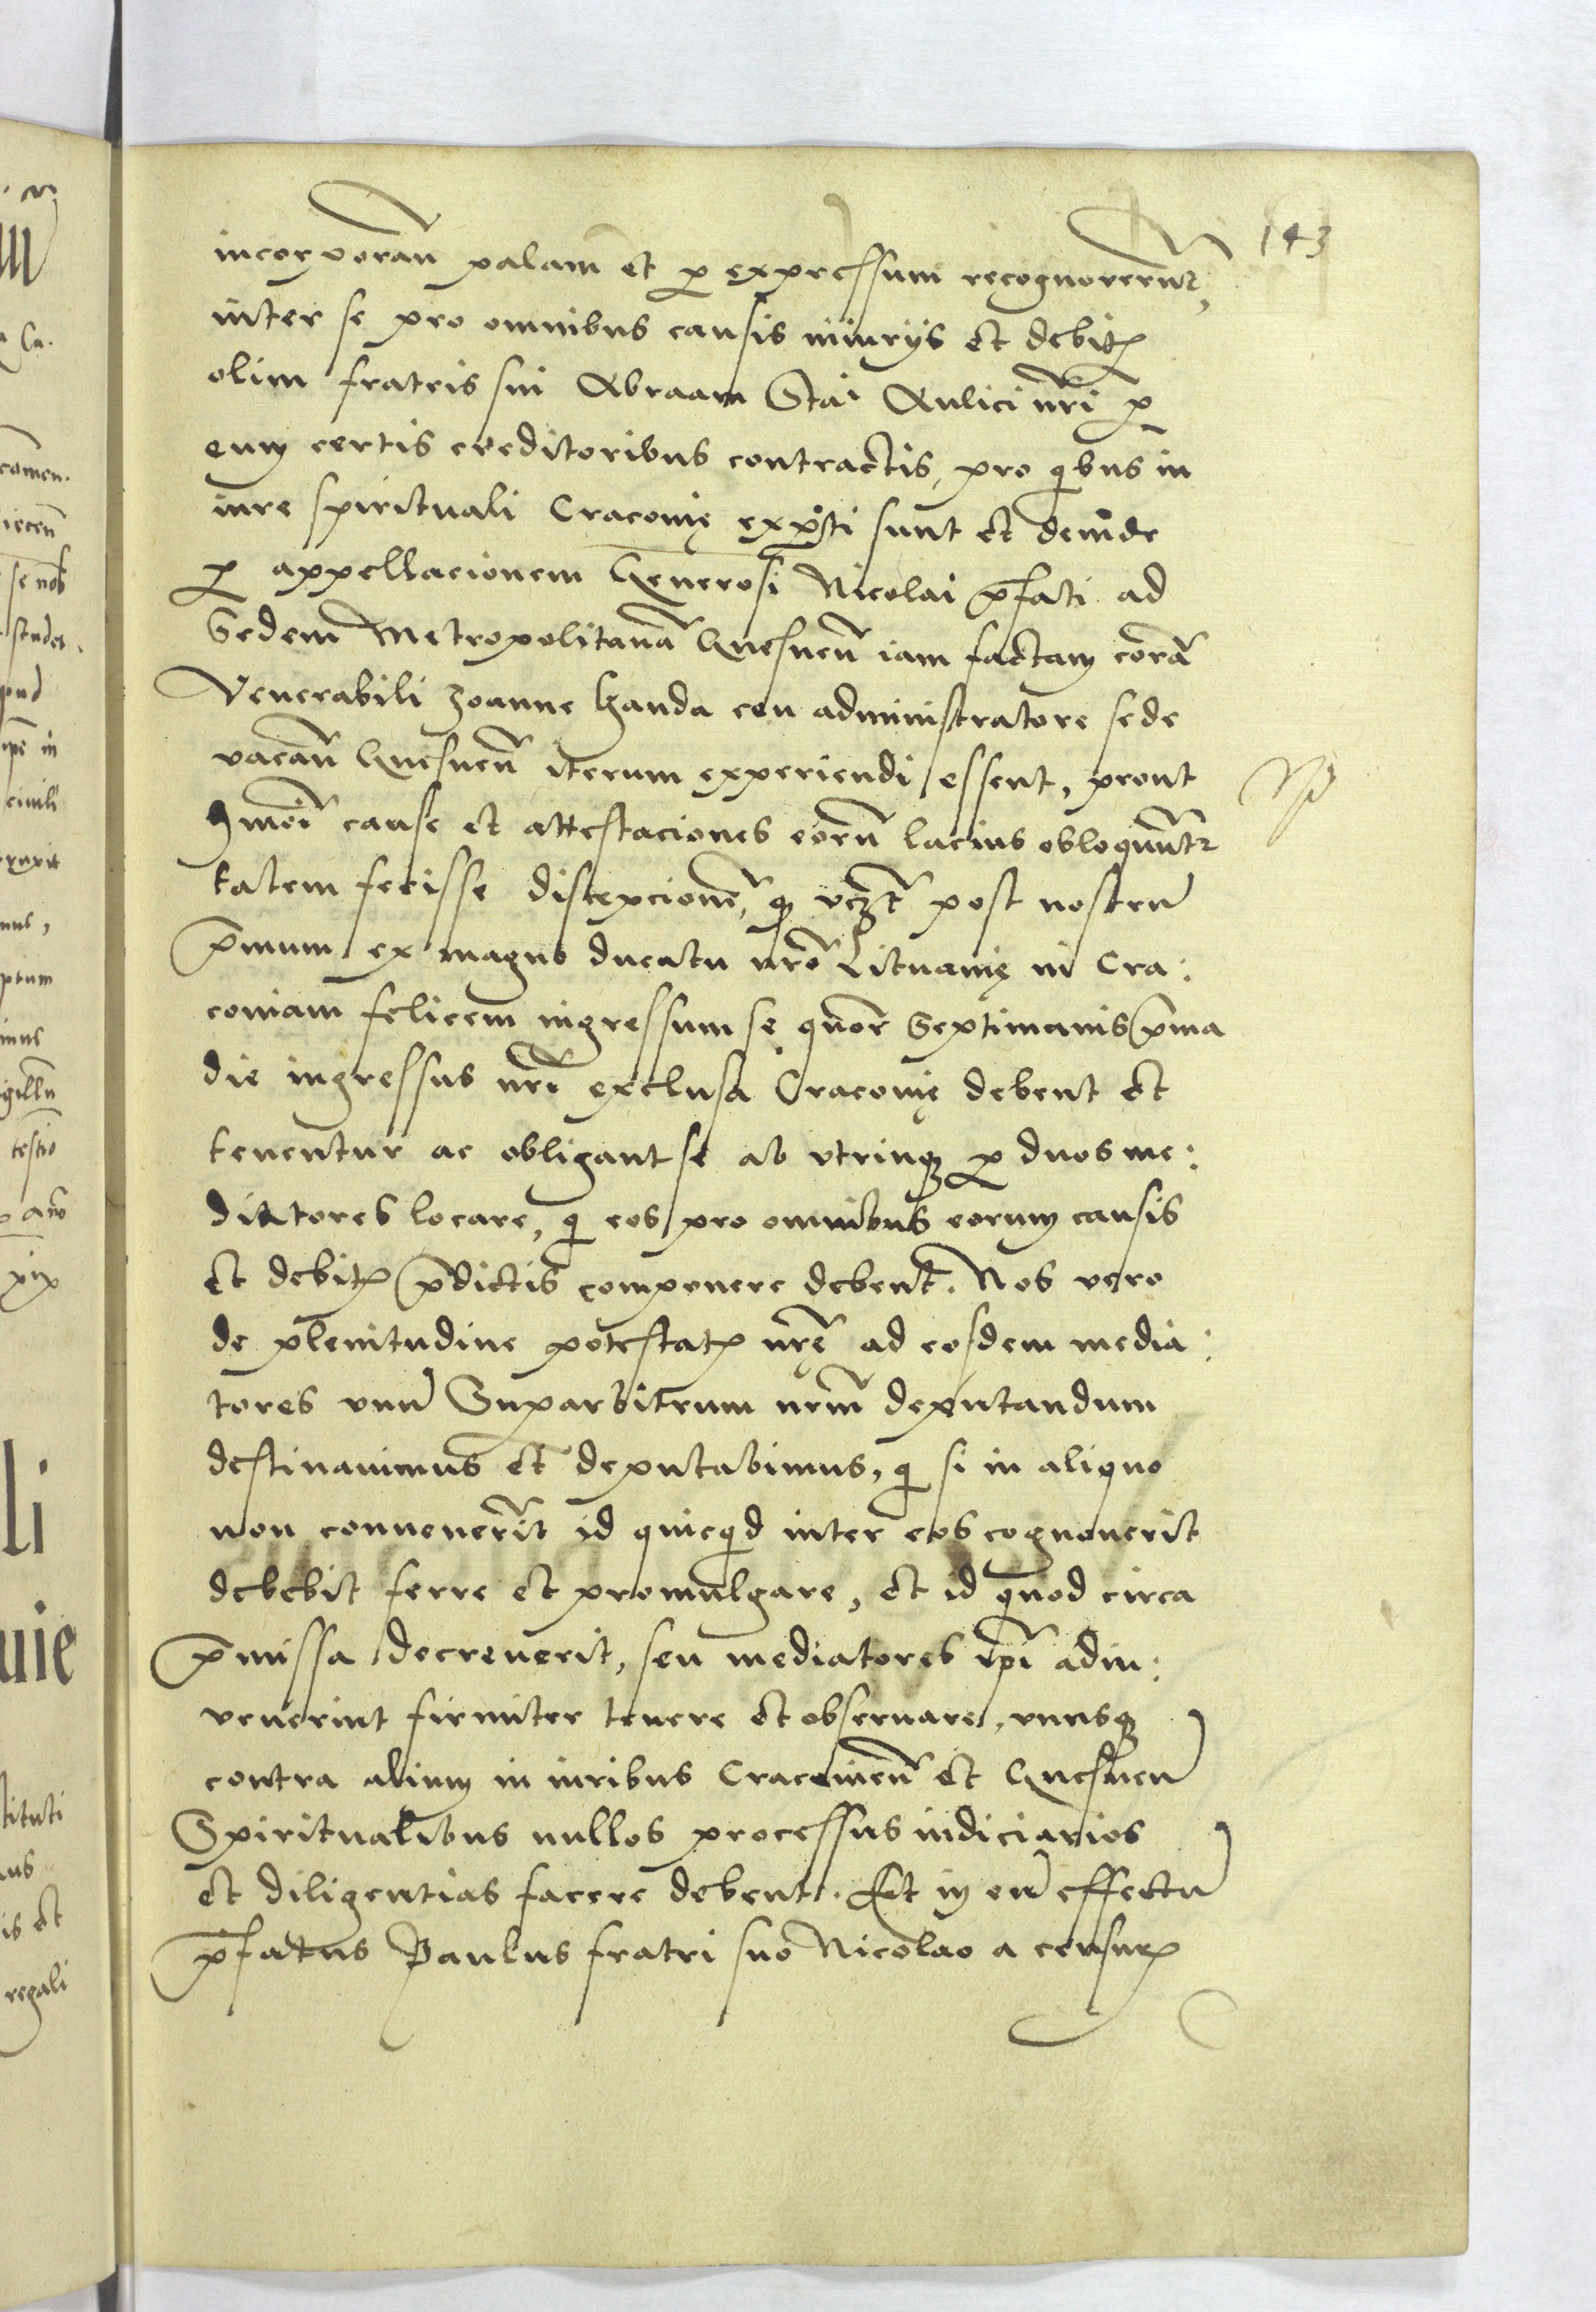 143
incorporan̄ palam et ꝑ expressum recognoverunt,
inter se pro omnibus causis iniurijs et debitꝭ
olim fratris sui Abraam Stai Aulici nr̄i ꝑ
eum certis creditoribus contractis, pro qibus in
iure spirituali Cracovię exp̄ti sunt et deinde
ꝑ appellacionem Generosi Nicolai p̄fati ad
Sedem Metropolitanā Gnesnen̄ iam factam corā
Venerabili Joanne Handa ceu administratore sede
vacan̄ Gnesnen̄ iterum experiendi essent, prout
hmōi cause et attestaciones eorū lacius obloquunt᷑
talem fecisse disceptionē, qꝫ vꝫt post nostrū
p̄mum ex magno ducatu nr̄o Lituanię in Cra:
coviam felicem ingressum se quōr Septimanis p̄ma
die ingressus nr̄i exclusa Cracovię debent et
tenentur ac obligant se ab vtrinqꝫ ꝑ duos me:
diatores locare, qi eos pro omnibus eorum causis
et debitꝭ p̄dictis componere debent. Nos vero
de plenitudine potestatꝭ nr̄ę ad eosdem media:
tores vnū Suparbitrum nr̄m deputandum
destinavimus et deputabimus, qi si in aliquo
non convenerīt id quicqid inter eos cognoverit
debebit ferre et promulgare, et id quod circa
p̄missa decreverit, seu mediatores ip̄i adin:
venerint firmiter tenere et observare, vnusqꝫ
contra alium in iuribus Cracovien̄ et Gnesnen̄
Spiritualibus nullos processus iudiciarios
et diligentias facere debent. Et in eū effectū
p̄fatus Paulus fratri suo Nicolao a censurꝭ